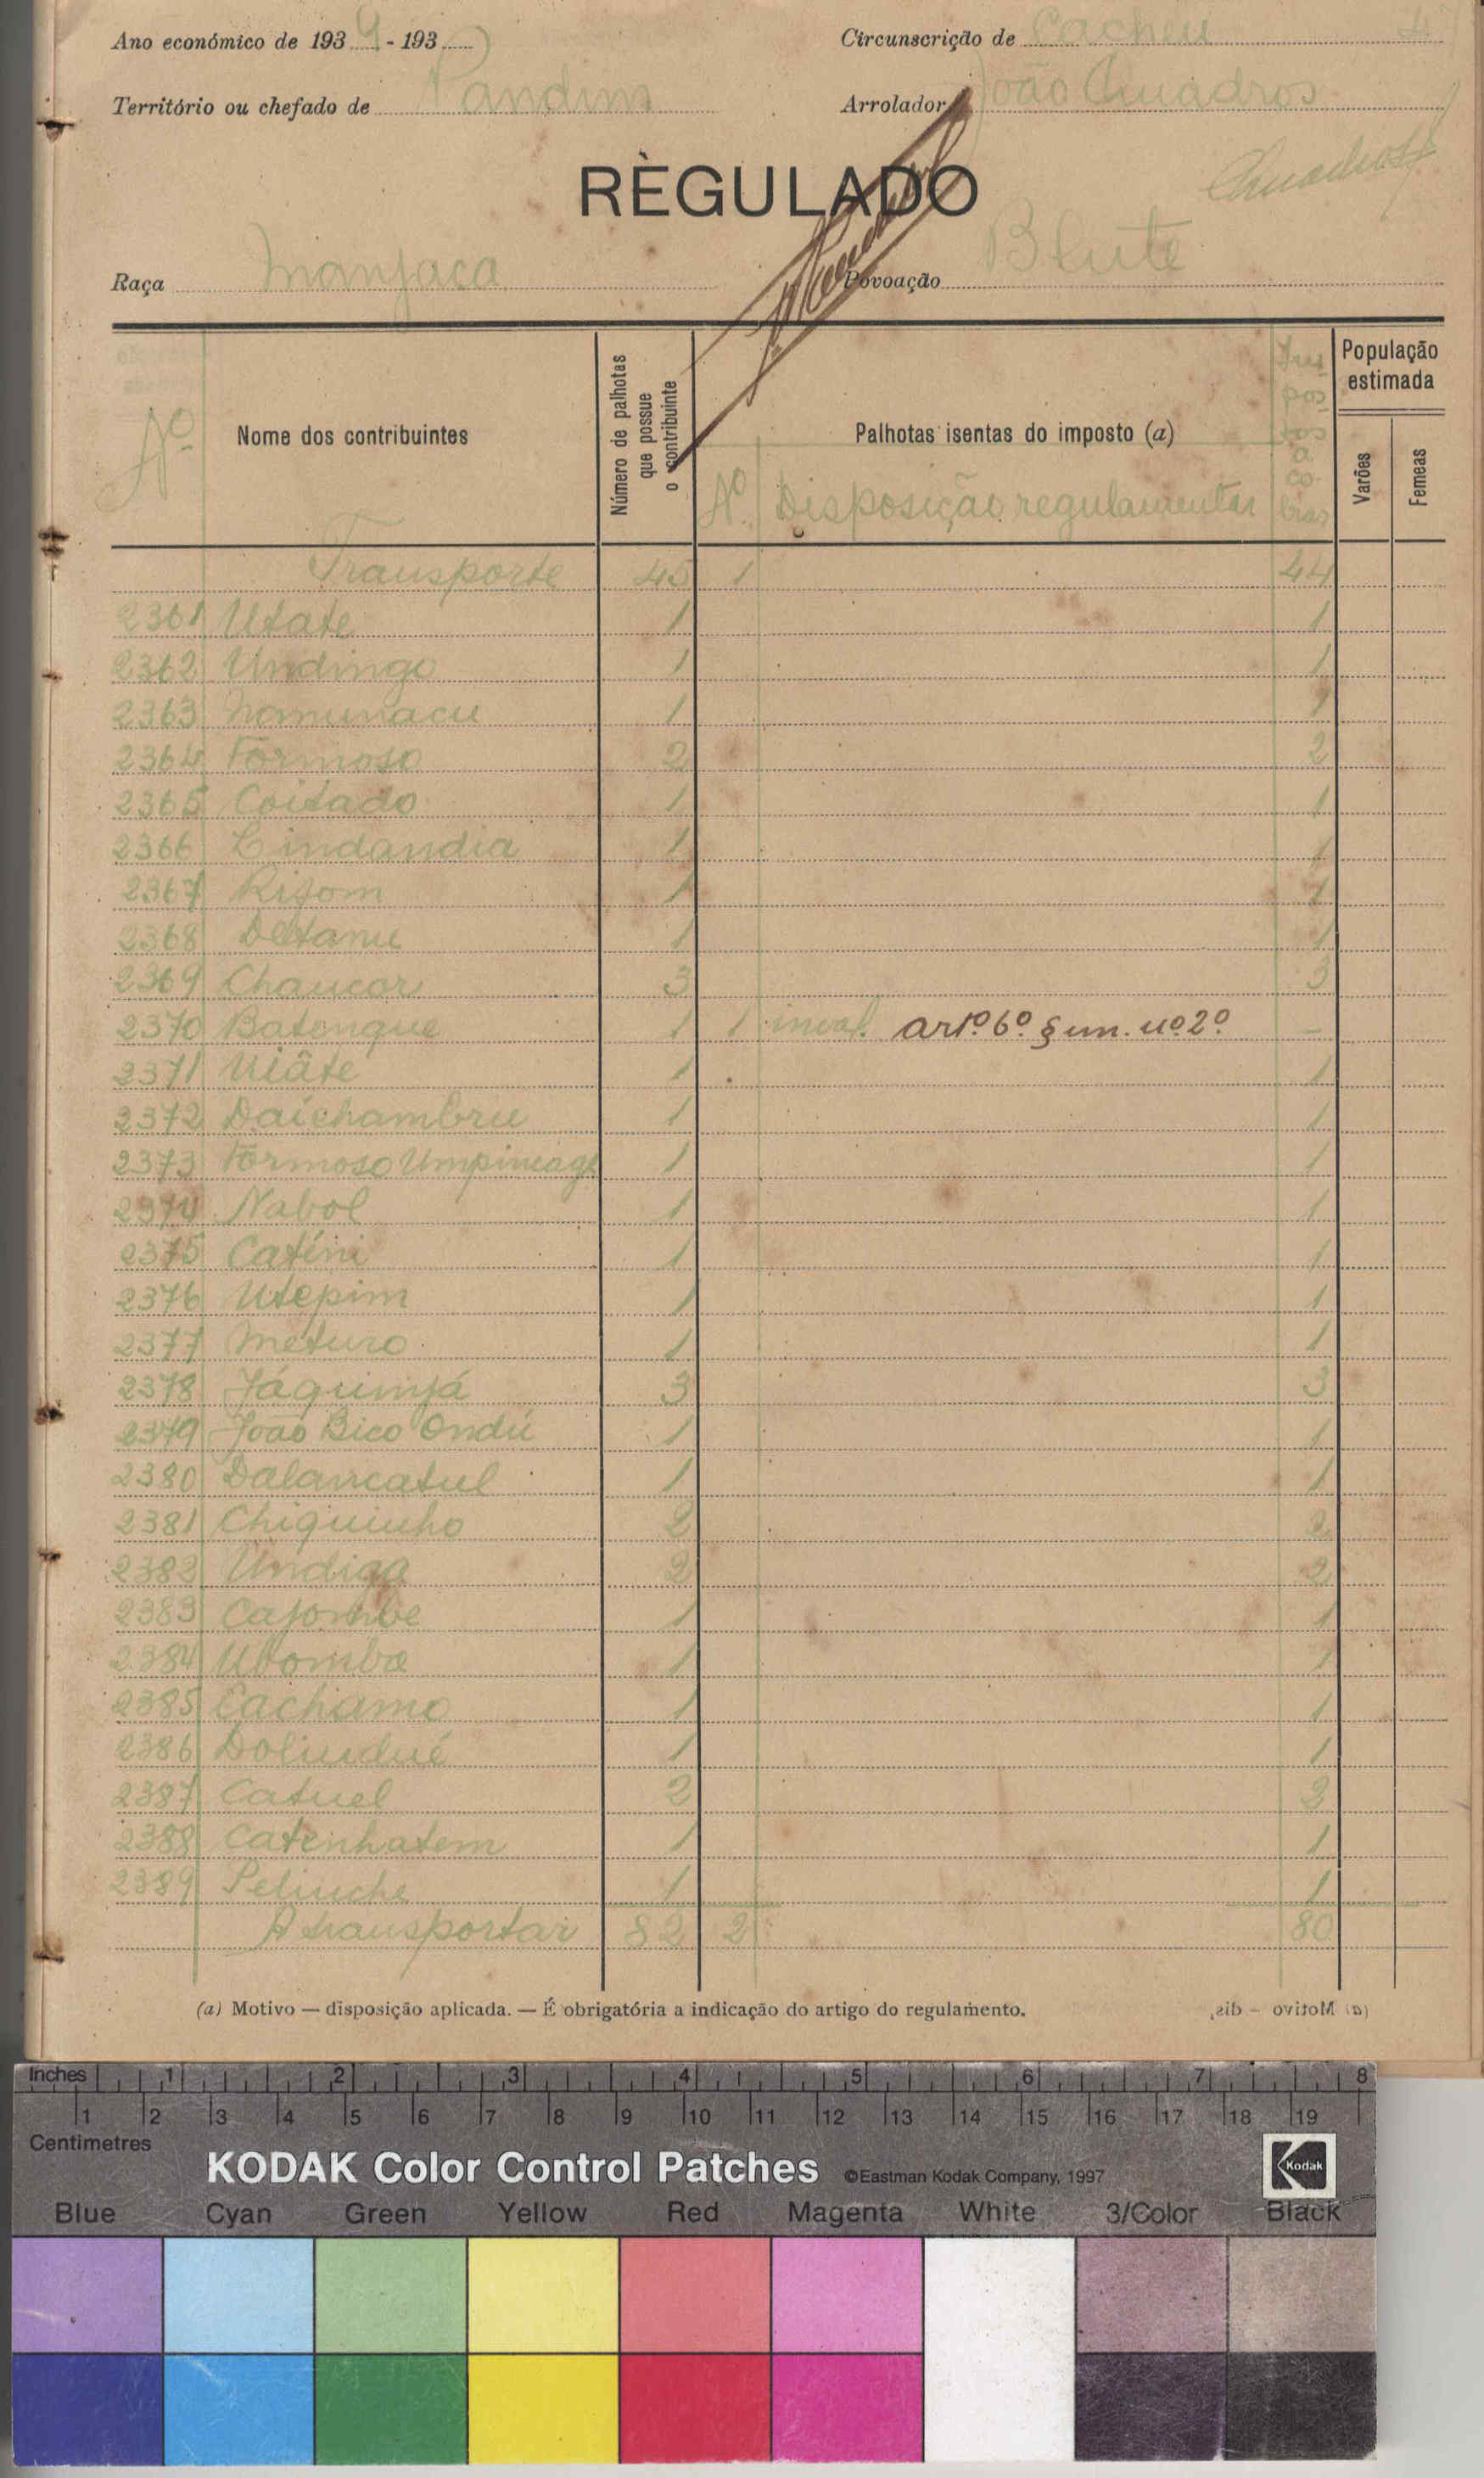 Ano económico de 1939 - 193
Circunscrição de Cacheu
Território ou chefado de Pandim
Arrolador João Quadros
RÈGULADO
Quadros
Raça Manjaca
Povoação Blute
Nº
Nome dos contribuintes
Número de palhotas que possue o contribuinte
Palhotas isentas do imposto (a)
Nº Disposição regulamentar
Impostos a cobrar
População estimada
Varões
Femeas
Transporte 45 1 44
2361 Utate 1 1
2362 Undingo 1 1
2363 Nomunacu 1 1
2364 Formoso 2 2
2365 Coitado 1 1
2366 Lindandia 1 1
2367 1 1
2368 1 1
2369 Chaucar 3 3
2370 Batenque 1 1 inval. artº 6º § un. nº 2º —
2371 Uiâte 1 1
2372 Daichambru 1 1
2373 Formoso 1 1
2374 Nabol 1 1
2375 Catêni 1 1
2376 Utepim 1 1
2377 Meturo 1 1
2378 Jáquimjá 3 3
2379 João Bico Ondú 1 1
2380 Dalancatul 1 1
2381 Chiquinho 2 2
2382 Undiga 2 2
2383 Cajombe 1 1
2384 Utomba 1 1
2385 Cachamo 1 1
2386 Dolindué 1 1
2387 Catuel 2 2
2388 Catenhatem 1 1
2389 Pelinche 1 1
A transportar 82 2 80
(a) Motivo — disposição aplicada. — É obrigatória a indicação do artigo do regulamento.
(a) Motivo — dis,
Inches 1 2 3 4 5 6 7 8
1 2 3 4 5 6 7 8 9 10 11 12 13 14 15 16 17 18 19
Centimetres
KODAK Color Control Patches ©Eastman Kodak Company, 1997 Kodak
Blue Cyan Green Yellow Red Magenta White 3/Color Black